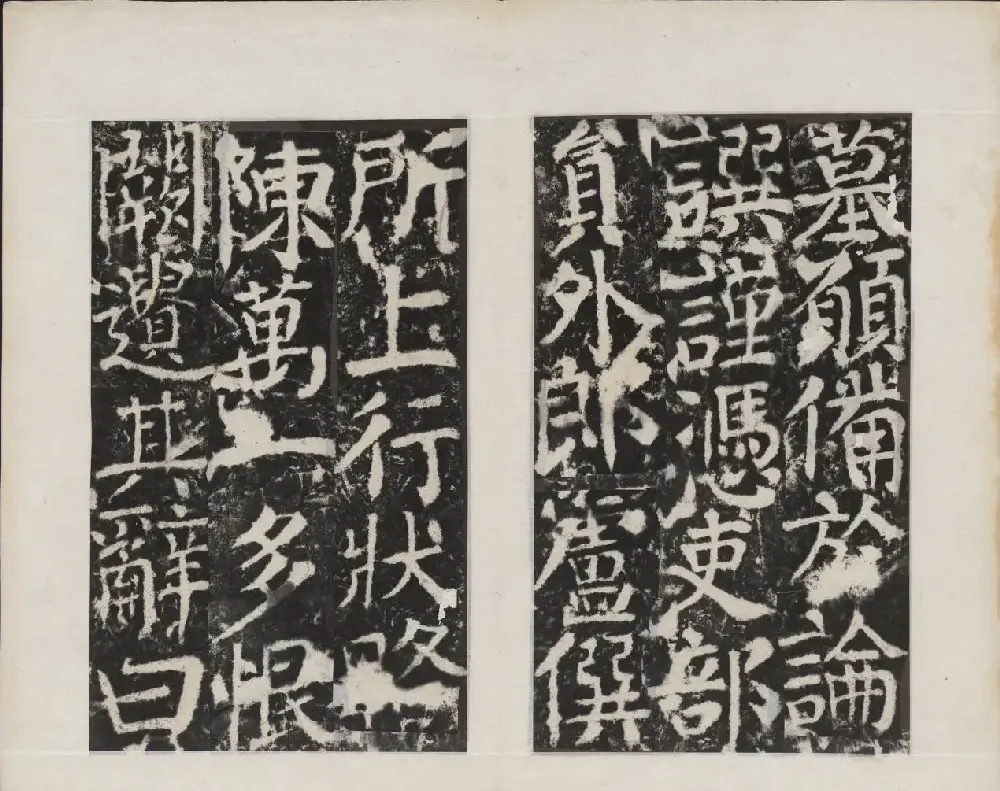 墓願備於論
譔謹憑吏部
員外郎盧僎
所上行狀略
陳萬一多恨
闕遺其辭曰